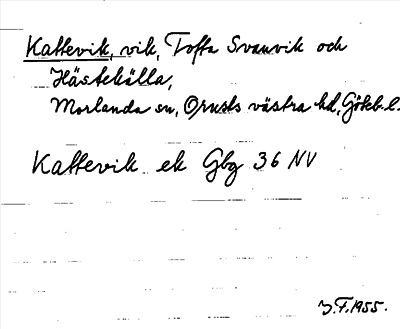 Kattevik, vik, Tofta Svanvik och
Hästekälla,
Morlanda sn, Orusts västra hd, Göteb. l.
Kattevik ek Gbg 36 NV
J.F. 1955.